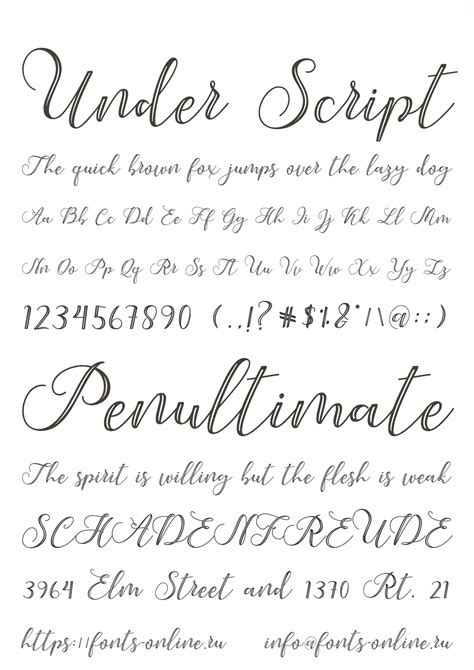 Under Script
The quick brown fox jumps over the lazy dog
Aa Bb Cc Dd Ee Ff Gg Hh Ii Jj Kk Ll Mm
Nn Oo Pp Qq Rr Ss Tt Uu Vv Ww Xx Yy Zz
1234567890 (.,!? #$%&*/|\@::)
Penultimate
The spirit is willing but the flesh is weak
SCHADENFREUDE
3964 Elm Street and 1370 Rt. 21
https://fonts-online.ru info@fonts-online.ru